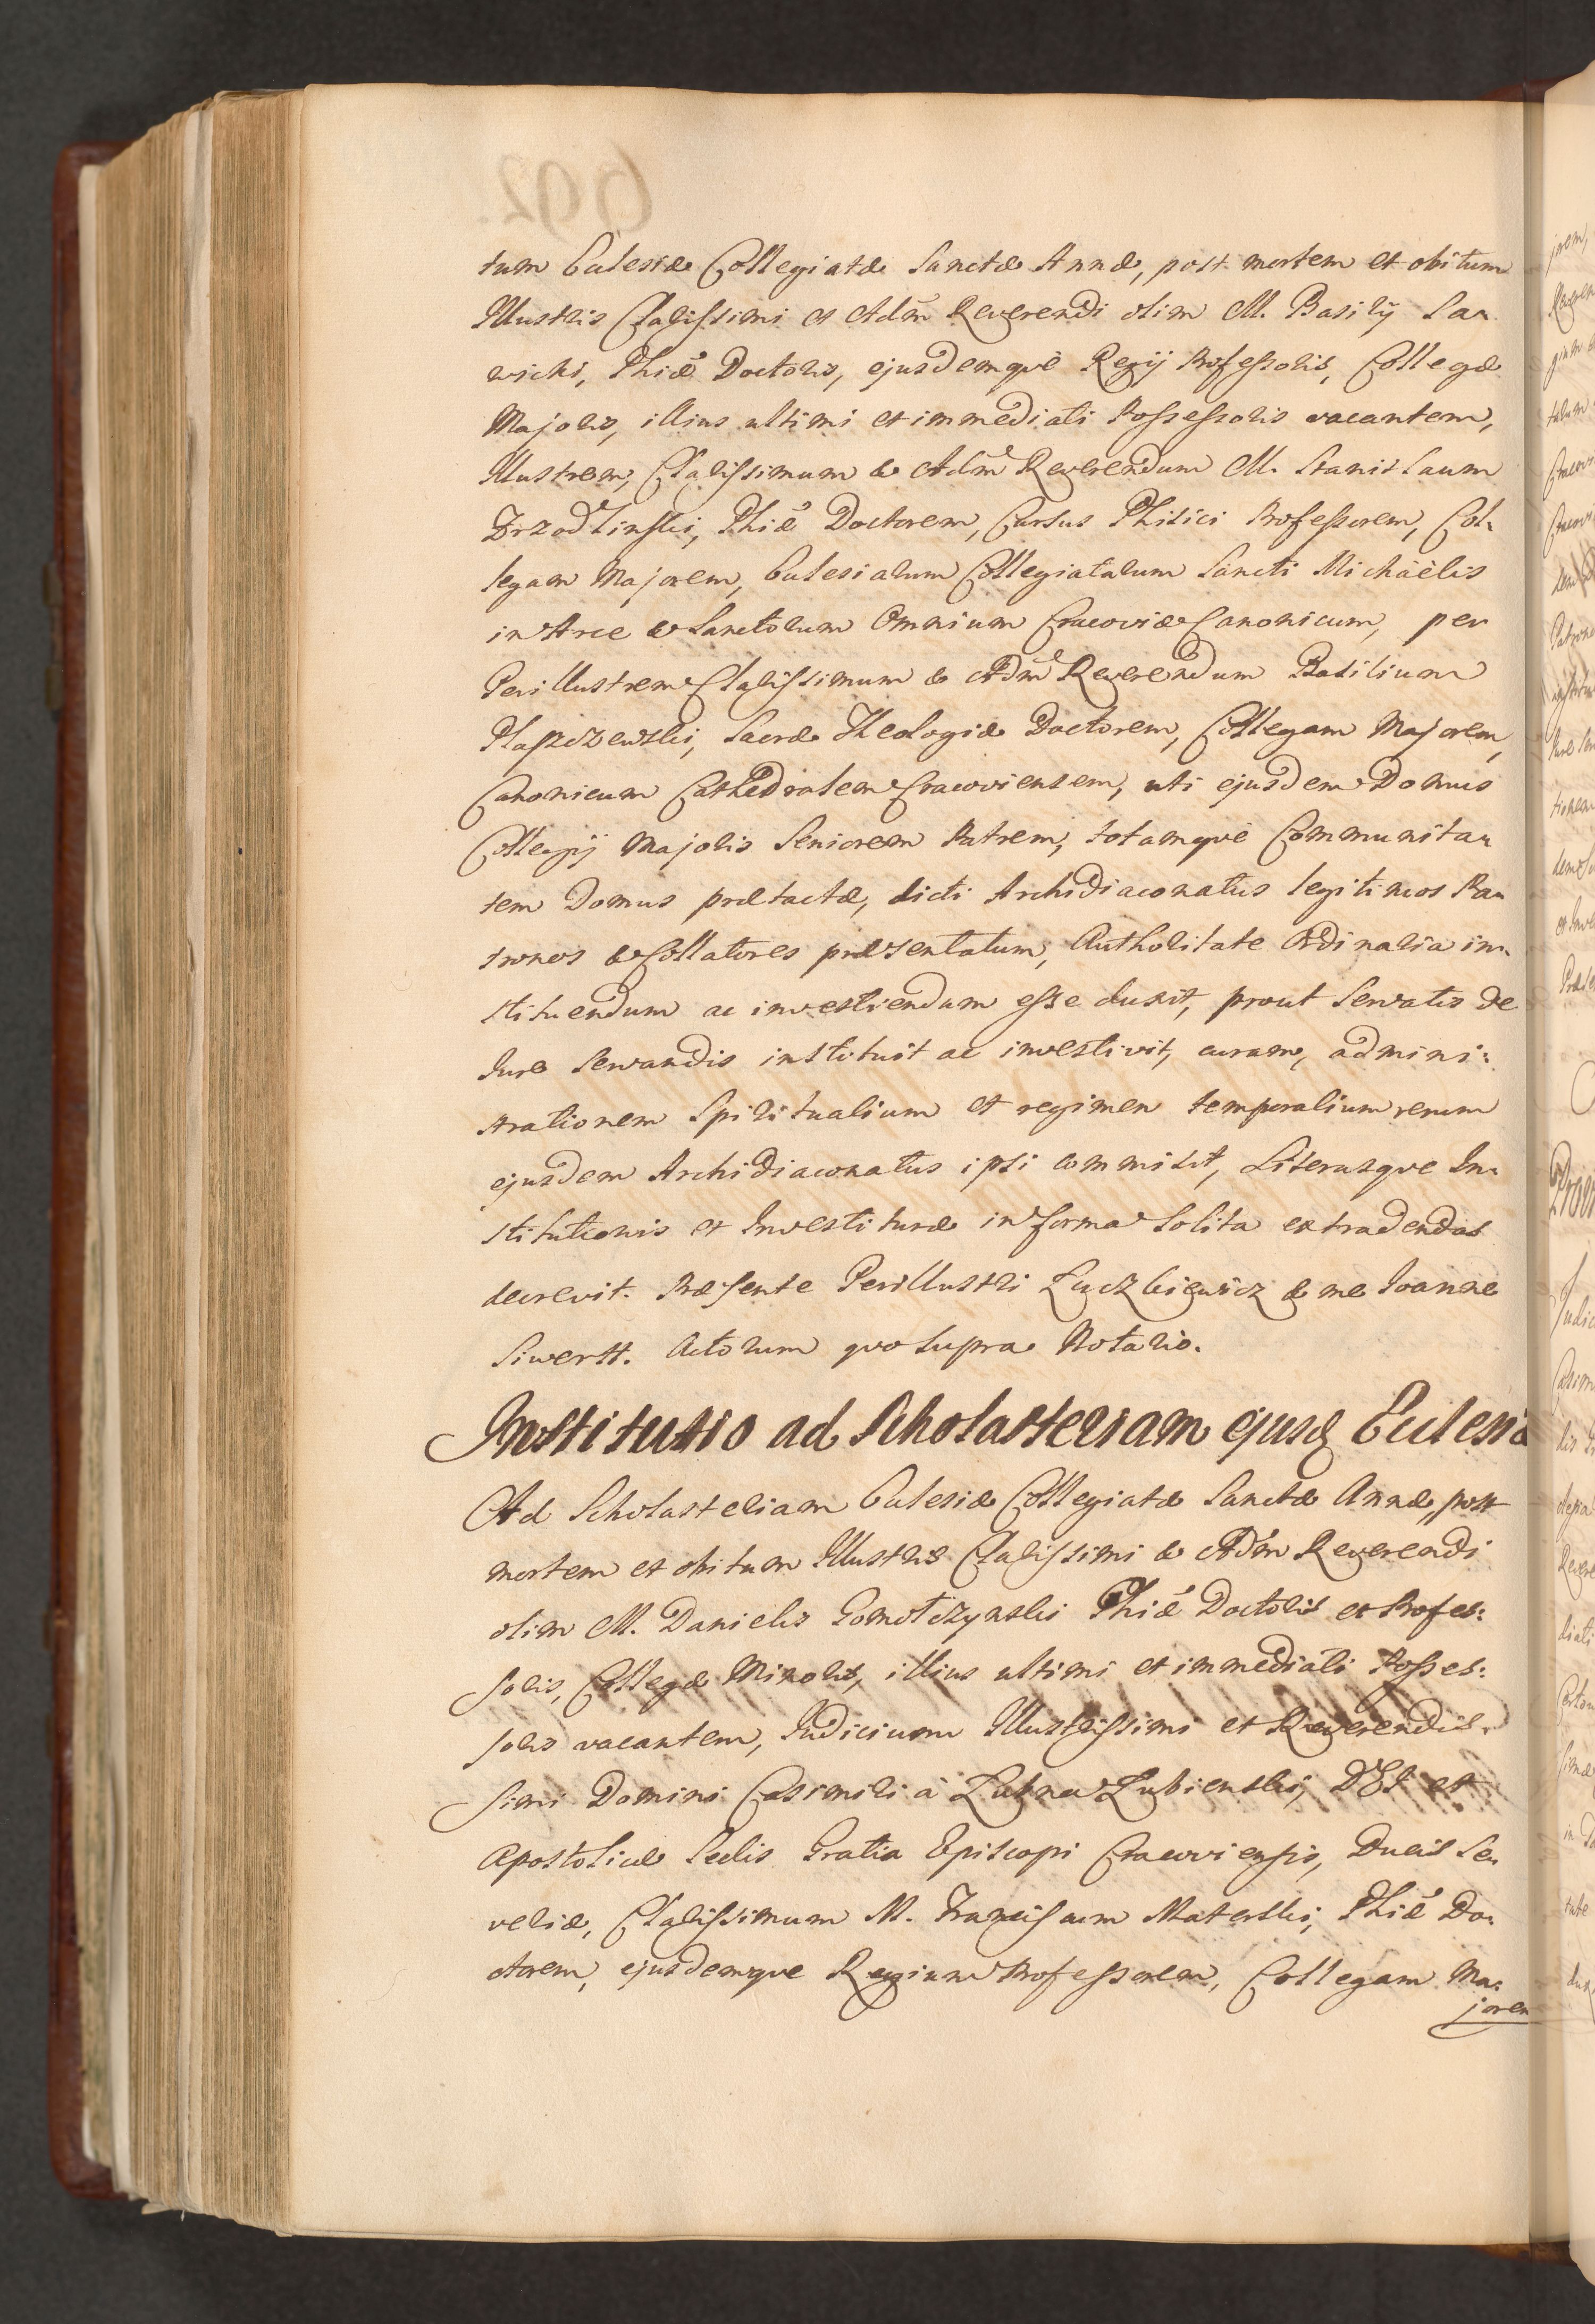 tum Ecclesiæ Collegiatæ Sanctæ Annæ, post mortem et obitum
Illustris Clarissimi et Adm̃ Reverendi olim M. Basilij Sa-
wicki, Phiæ Doctoris, ejusdemqve Regij Professoris, Collegæ
Majoris, illius ultimi et immediati Possessoris vacantem,
Illustrem, Clarissimum & Adm̃ Reverendum M. Stanislaum
Zrzodlinski, Phiæ Doctorem, Cursus Phisici Professorem, Col-
legam Majorem, Ecclesiarum Collegiatarum Sancti Michaëlis
in Arce & Sanctorum Omnium Cracoviæ Canonicum, per
Perillustrem Clarissimum & Adm̃ Reverendum Basilium
Płaszczewski, Sacræ Theologiæ Doctorem, Collegam Majorem,
Canonicum Cathedralem Cracoviensem, uti ejusdem Domus
Collegij Majoris Seniorem Patrem, totamqve Communita-
tem Domus prætactæ, dicti Archidiaconatus legitimos Pa-
tronos & Collatores præsentatum, Authoritate Ordinaria in-
stituendum ac investiendum esse duxit, prout servatis de
Jure servandis instituit ac investivit, curam, admini-
strationem Spiritualium et regimen temporalium rerum
ejusdem Archidiaconatus ipsi commisit, Literasqve In-
stitutionis et Investituræ in forma solita extradendas
decrevit. Præsente Perillustri Łuczkiewicz & me Joanne
Siwertt. Actorum quo supra Notario.
Institutio ad Scholasteriam ejusd Ecclesiæ
Ad Scholasteriam Ecclesiæ Collegiatæ Sanctæ Annæ, post
mortem et obitum Illustris Clarissimi & Adm̃ Reverendi
olim M. Danielis Gomolczynski Phiæ Doctoris et Profes-
soris, Collegæ Minoris, illius ultimi et immediati Posses-
soris vacantem, Judicium Illustrissimi et Reverendis-
simi Domini Casimiri à Łubna Łubienski, DEI et
Apostolicæ Sedis Gratia Episcopi Cracoviensis, Ducis Se-
veriæ, Clarissimum M. Franciscum Materski, Phiæ Do-
ctorem, ejusdemqve Regium Professorem, Collegam Ma-
jorem